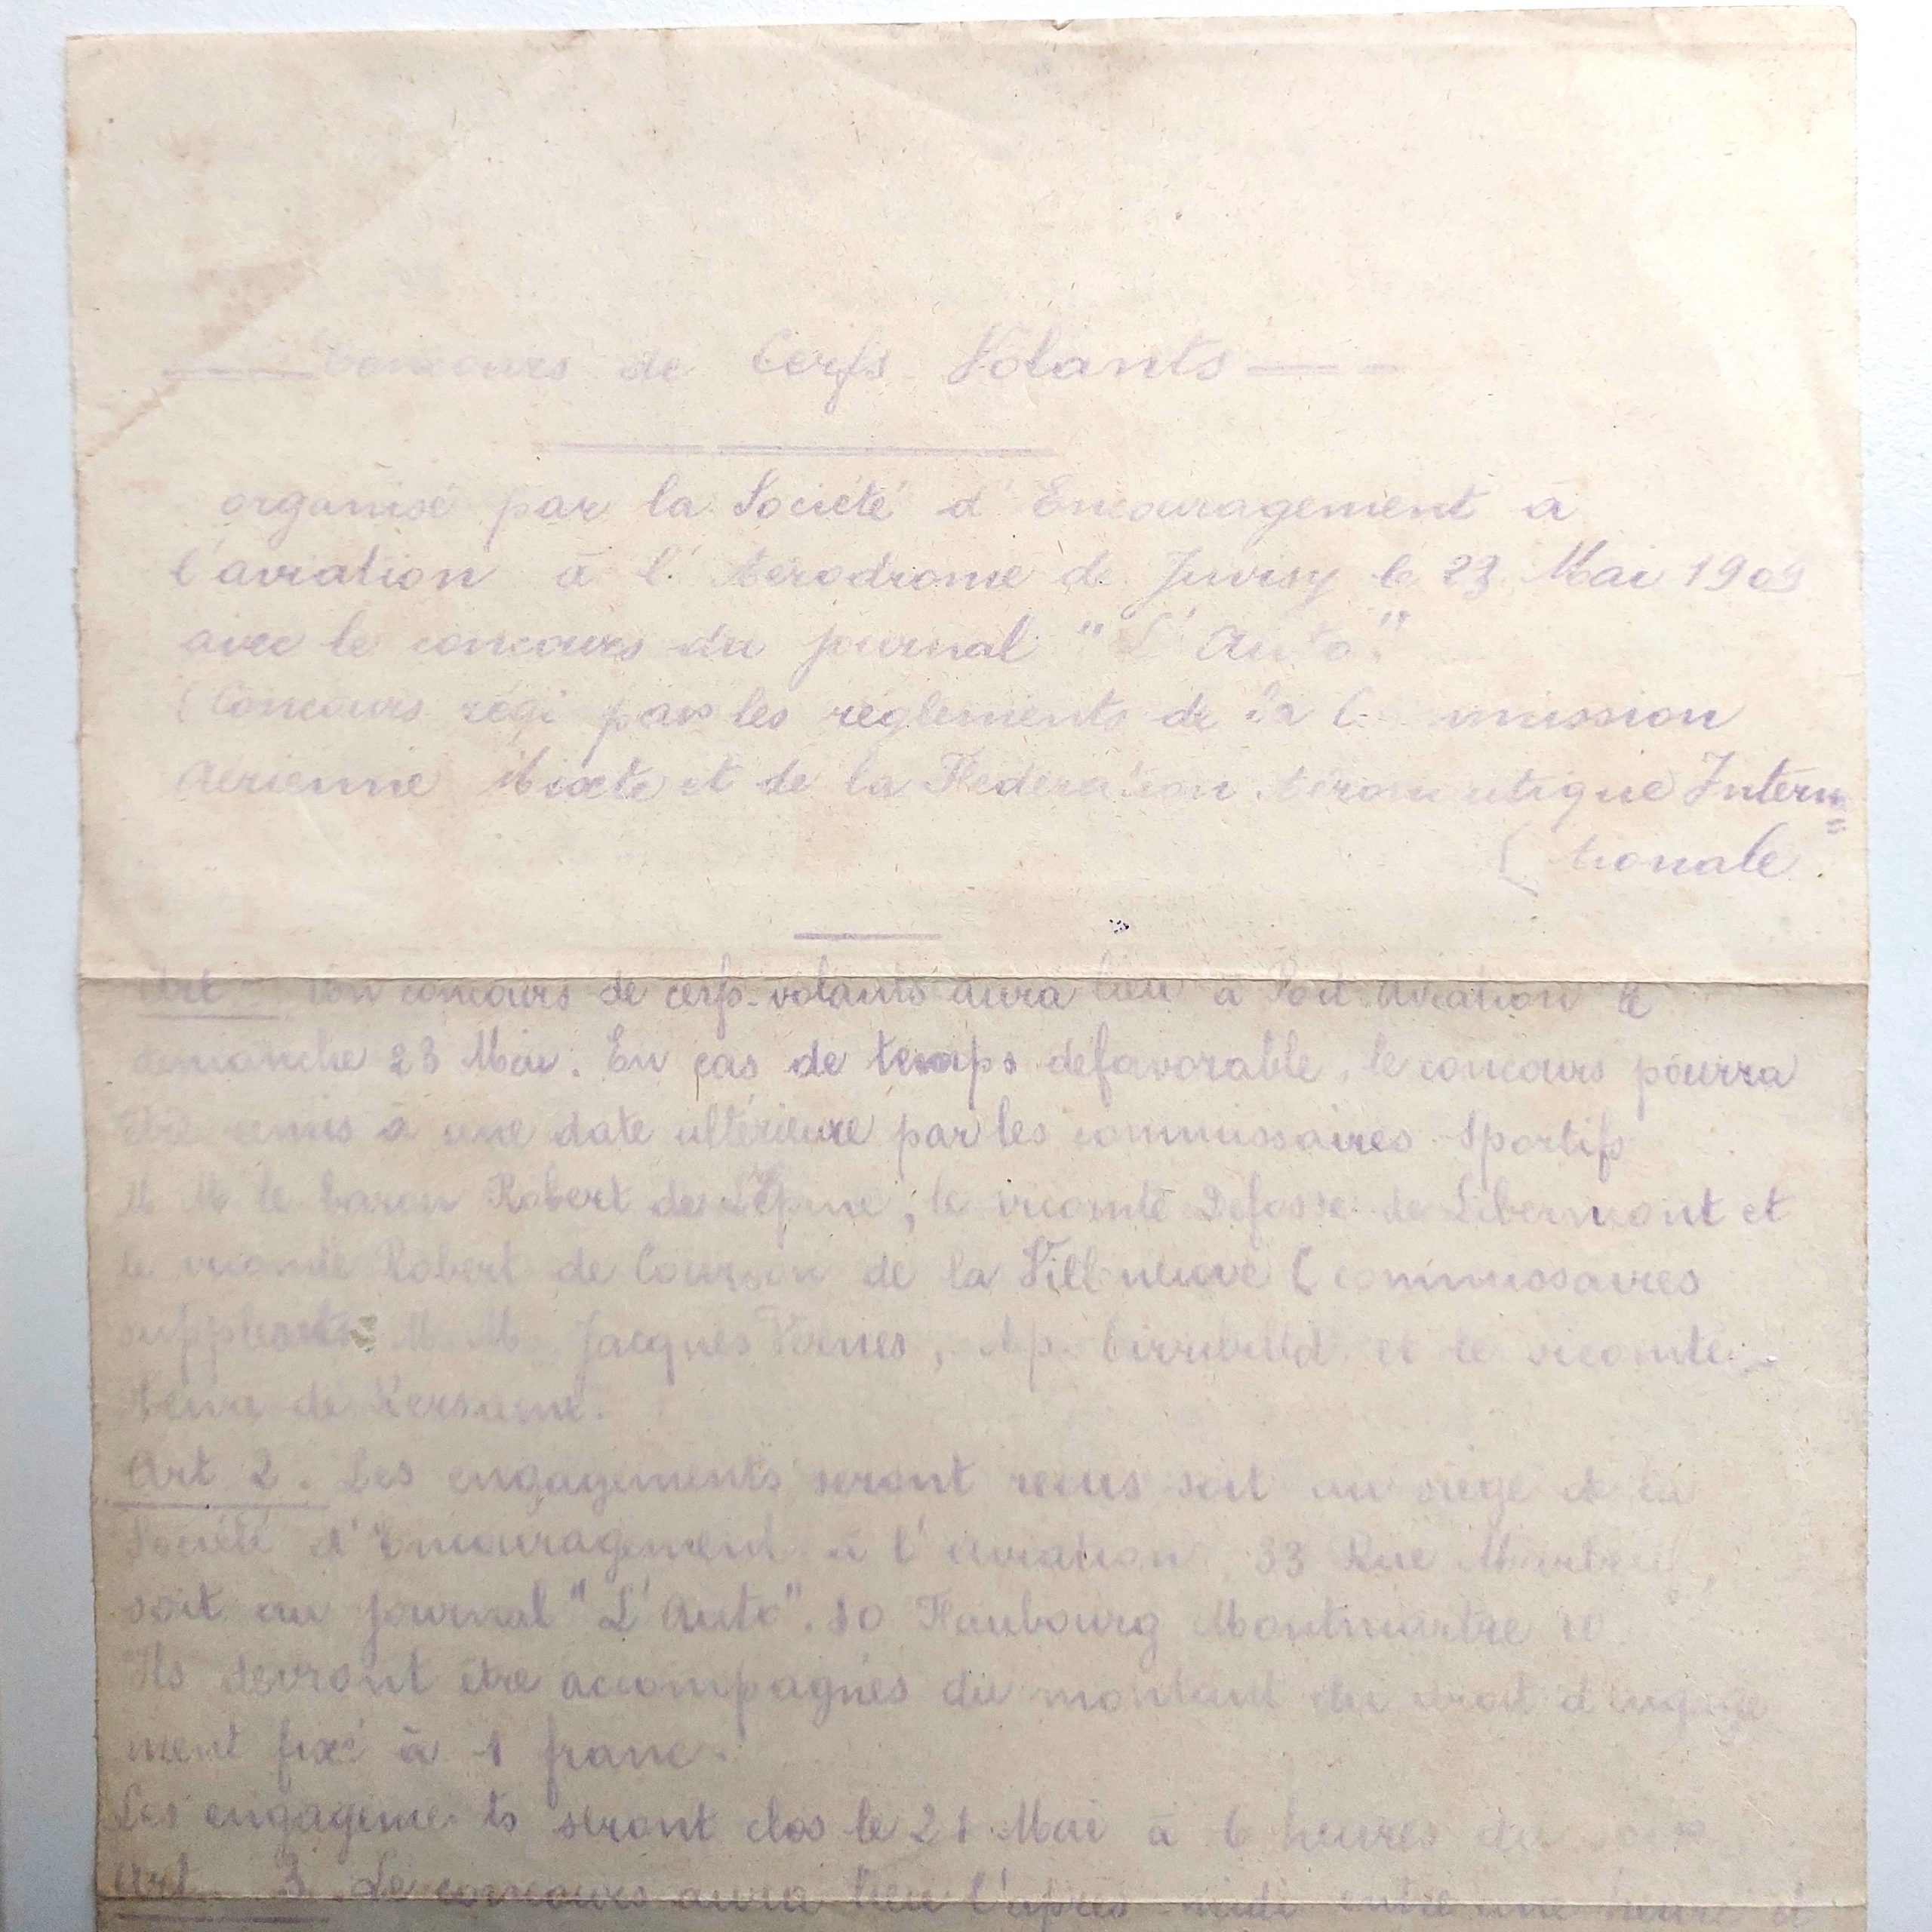 Concours de Cerfs Volants
organisé par la Société d'Encouragement à
l'aviation à l'Aérodrome de Juvisy le 23 Mai 1909
avec le concours du journal "L'Auto".
(Concours régi par les règlements de la Commission
Aérienne Mixte et de la Fédération Aéronautique Interna=
( tionale.
Art Un concours de cerfs-volants aura lieu à Port-Aviation le
dimanche 23 Mai. En cas de temps défavorable, le concours pourra
être remis à une date ultérieure par les commissaires Sportifs
M M le baron Robert de Lépine, le vicomte Defosse de Libermont et
le vicomte Robert de Courson de la Villeneuve (commissaires
suppléants M. M. Jacques et le vicomte
de
Art 2. Les engagements seront reçus soit au siège de la
Société d'Encouragement à l'aviation, 33 Rue
soit au journal "L'Auto". 10 Faubourg Montmartre 10.
Ils devront être accompagnés du montant du droit d'engage
ment fixé à 1 franc.
Les engagements seront clos le 21 Mai à 6 heures du soir
Art. 3. Le concours aura lieu l'après-midi entre une heure et